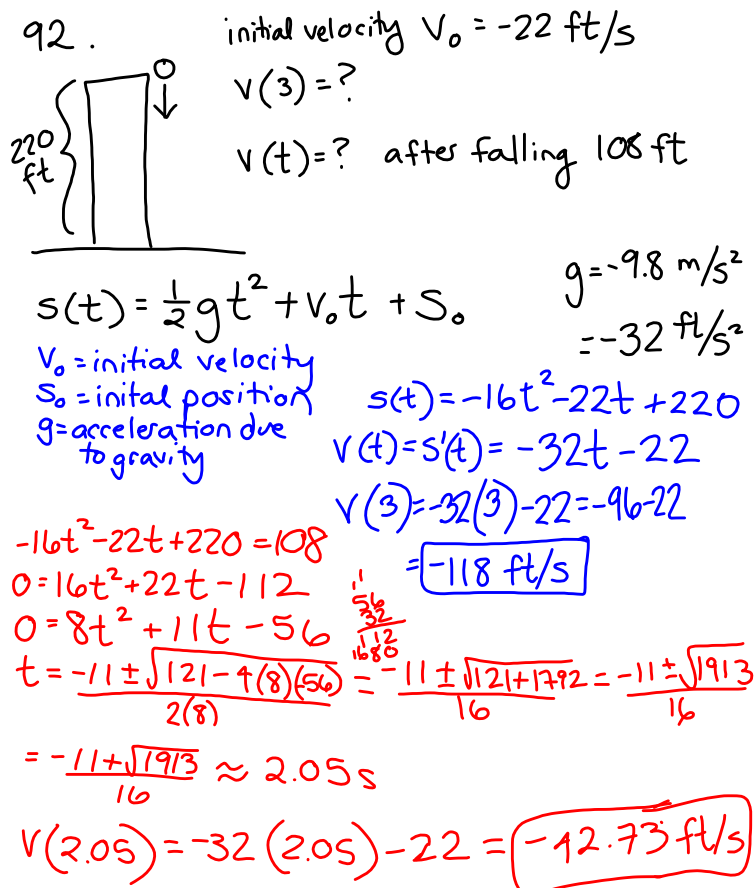 92.
initial velocity V₀ = -22 ft/s
v(3) = ?
220 ft
v(t) = ? after falling 108 ft
g = -9.8 m/s²
= -32 ft/s²
s(t) = ½gt² + v₀t + S₀
V₀ = initial velocity
S₀ = inital position
g = acceleration due
to gravity
s(t) = -16t² - 22t + 220
v(t) = s'(t) = -32t - 22
v(3) = -32(3) - 22 = -96 - 22
= -118 ft/s
-16t² - 22t + 220 = 108
0 = 16t² + 22t - 112
0 = 8t² + 11t - 56
11
56
32
112
1680
t = (-11 ± √(121 - 4(8)(-56)))/2(8) = (-11 ± √(121 + 1792))/16 = (-11 ± √1913)/16
= (-11 + √1913)/16 ≈ 2.05 s
v(2.05) = -32(2.05) - 22 = -42.73 ft/s